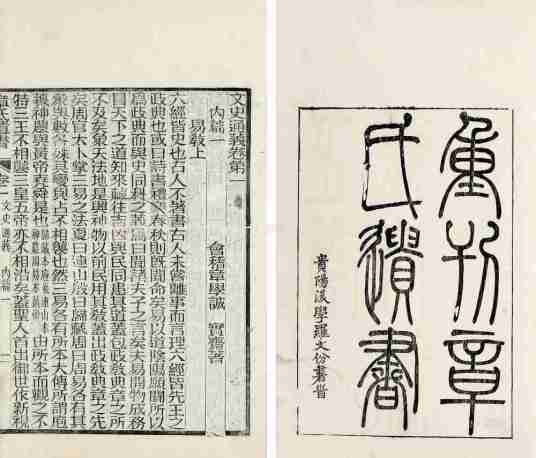 重刊章
氏遺書
貴陽後學羅文份
文史通義卷第一
內篇一 會稽章學誠 實齋著
易教上
六經皆史也古人不著書古人未嘗離事而言理六經皆先王之
政典也或曰詩書禮樂春秋則既聞命矣易以道陰陽願聞所以
為政典而與史同科之義焉曰聞諸夫子之言矣夫易開物成務
冒天下之道知來藏往吉凶與民同患其道蓋包政教典章之所
不及矣象天法地是興神物以前民用其教蓋出政教典章之先
矣周官太卜掌三易之法夏曰連山殷曰歸藏周曰周易各有其
象與數各殊其變與占不相襲也然三易各有所本大傳所謂庖
羲神農與黃帝堯舜是也歸藏本庖羲連山本神農周易本黃帝由所本而觀之不
特三王不相襲三皇五帝亦不相沿矣蓋聖人首出御世作新視
章氏遺書 卷一 文史通義 內篇一 一